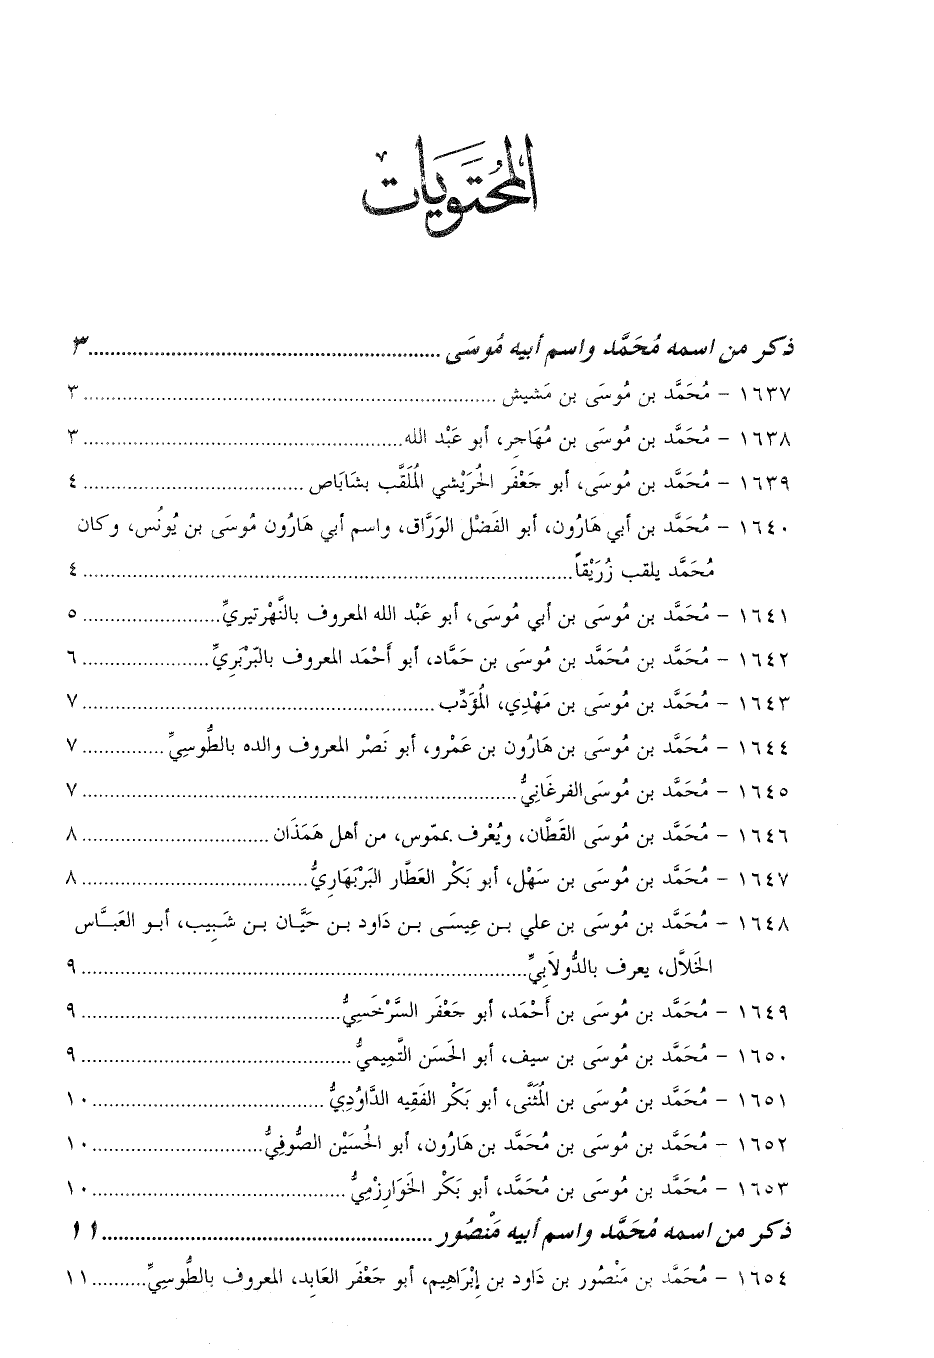 المُحتَوَيات
ذكر من اسمه مُحَمَّد واسم أبيه مُوسَى ........ ٣
١٦٣٧ - مُحَمَّد بن مُوسَى بن مَشيش ........ ٣
١٦٣٨ - مُحَمَّد بن مُوسَى بن مُهَاجِر، أبو عَبْد الله ........ ٣
١٦٣٩ - مُحَمَّد بن مُوسَى، أبو جَعْفَر الحُرَيْشي المُلَقَّب بشَابَاص ........ ٤
١٦٤٠ - مُحَمَّد بن أبي هَارُون، أبو الفَضْل الوَرَّاق، واسم أبي هَارُون مُوسَى بن يُونُس، وكان
مُحَمَّد يلقب زُرَيْقاً ........ ٤
١٦٤١ - مُحَمَّد بن مُوسَى بن أبي مُوسَى، أبو عَبْد الله المعروف بالنَّهْرتيريِّ ........ ٥
١٦٤٢ - مُحَمَّد بن مُحَمَّد بن مُوسَى بن حَمَّاد، أبو أَحْمَد المعروف بالبَرْبَرِيِّ ........ ٦
١٦٤٣ - مُحَمَّد بن مُوسَى بن مَهْدِي، المُؤَدِّب ........ ٧
١٦٤٤ - مُحَمَّد بن مُوسَى بن هَارُون بن عَمْرو، أبو نَصْر المعروف والده بالطُّوسِيِّ ........ ٧
١٦٤٥ - مُحَمَّد بن مُوسَى الفرغَانِيُّ ........ ٧
١٦٤٦ - مُحَمَّد بن مُوسَى القَطَّان، ويُعْرف بممّوس، من أهل هَمَذَان ........ ٨
١٦٤٧ - مُحَمَّد بن مُوسَى بن سَهْل، أبو بَكْر العَطَّار البَرْبَهَارِيُّ ........ ٨
١٦٤٨ - مُحَمَّد بن مُوسَى بن علي بن عِيسَى بن دَاود بن حَيَّان بن شَبِيب، أبو العَبَّاس
الخَلاَّل، يعرف بالدُّولاَبِيِّ ........ ٩
١٦٤٩ - مُحَمَّد بن مُوسَى بن أَحْمَد، أبو جَعْفَر السَّرْخَسِيُّ ........ ٩
١٦٥٠ - مُحَمَّد بن مُوسَى بن سيف، أبو الحَسَن التَّمِيميُّ ........ ٩
١٦٥١ - مُحَمَّد بن مُوسَى بن المُثَنَّى، أبو بَكْر الفَقِيه الدَّاوُدِيُّ ........ ١٠
١٦٥٢ - مُحَمَّد بن مُوسَى بن مُحَمَّد بن هَارُون، أبو الحُسَيْن الصُّوفِيُّ ........ ١٠
١٦٥٣ - مُحَمَّد بن مُوسَى بن مُحَمَّد، أبو بَكْر الخَوَارِزْمِيُّ ........ ١٠
ذكر من اسمه مُحَمَّد واسم أبيه مَنْصُور ........ ١١
١٦٥٤ - مُحَمَّد بن مَنْصُور بن دَاود بن إِبْرَاهِيم، أبو جَعْفَر العَابِد، المعروف بالطُّوسِيِّ ........ ١١